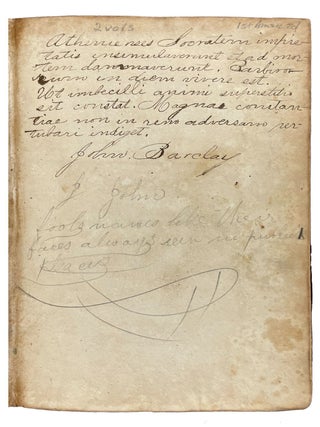 2 vols
Athenienses Socratem impie
tatis insimulaverunt et ad mor
tem damnaverunt. Barbaro
rum in diem vivere est.
Ut imbecilli animi superstitio
sit constat. Magnae constan
tiae non in rem adversam per
tubari indiget.
John. Barclay
J John
fools names like their
faces always seen in public
places